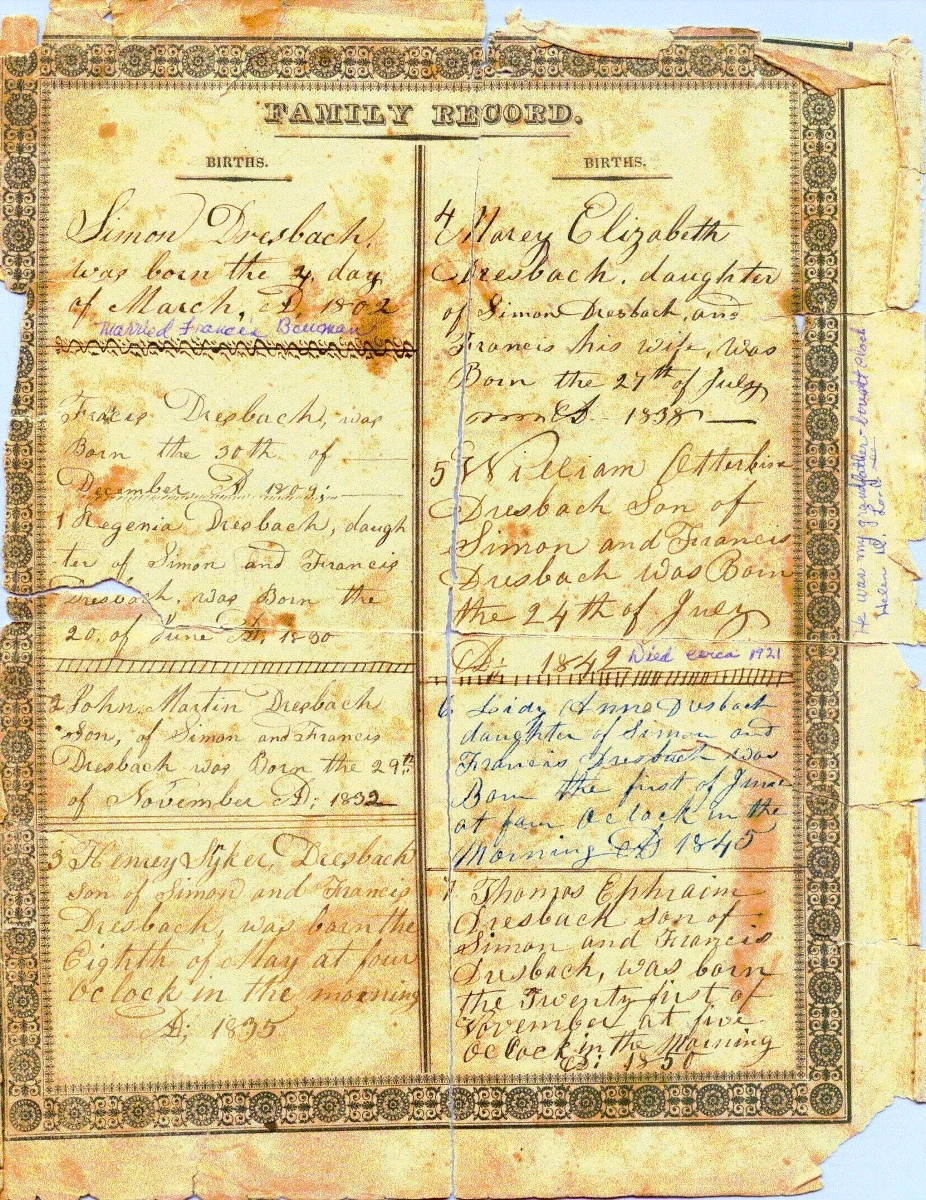 FAMILY RECORD.
BIRTHS.
Simon Dresbach,
was born the 4 day
of March, AD, 1802
Married Frances Bowman
Fracis Dresbach, was
Born the 30th of
December AD 1809;
1 Regenia Dresbach, daugh
-ter of Simon and Francis
Dresbach, was Born the
20, of June AD, 1830
2 John Martin Dresbach
Son, of Simon and Francis
Dresbach was Born the 29th
of November AD; 1832
3 Henrey Dresbach
Son of Simon and Francis
Dresbach, was born the
Eighth of May at four
Oclock in the morning
AD; 1835
BIRTHS.
4 Marey Elizabeth
Dresbach, daughter
of Simon Dresbach, and
Francis his wife, was
Born the 27th of July
AD 1838
5 William Otterbine
Dresbach Son of
Simon and Francis
Dresbach was Born
the 24th of July
AD; 1842 Died circa 1921
6 Lidy Anne Dresbach
daughter of Simon and
Francis Dresbach was
Born the first of June
at four Oclock in the
Morning AD 1845
7 Thomas Ephraim
Dresbach Son of
Simon and Francis
Dresbach, was born
the Twenty first of
November at five
Oclock in the Morning
AD; 1850
He was my grandfather - bought clock
Helen D.